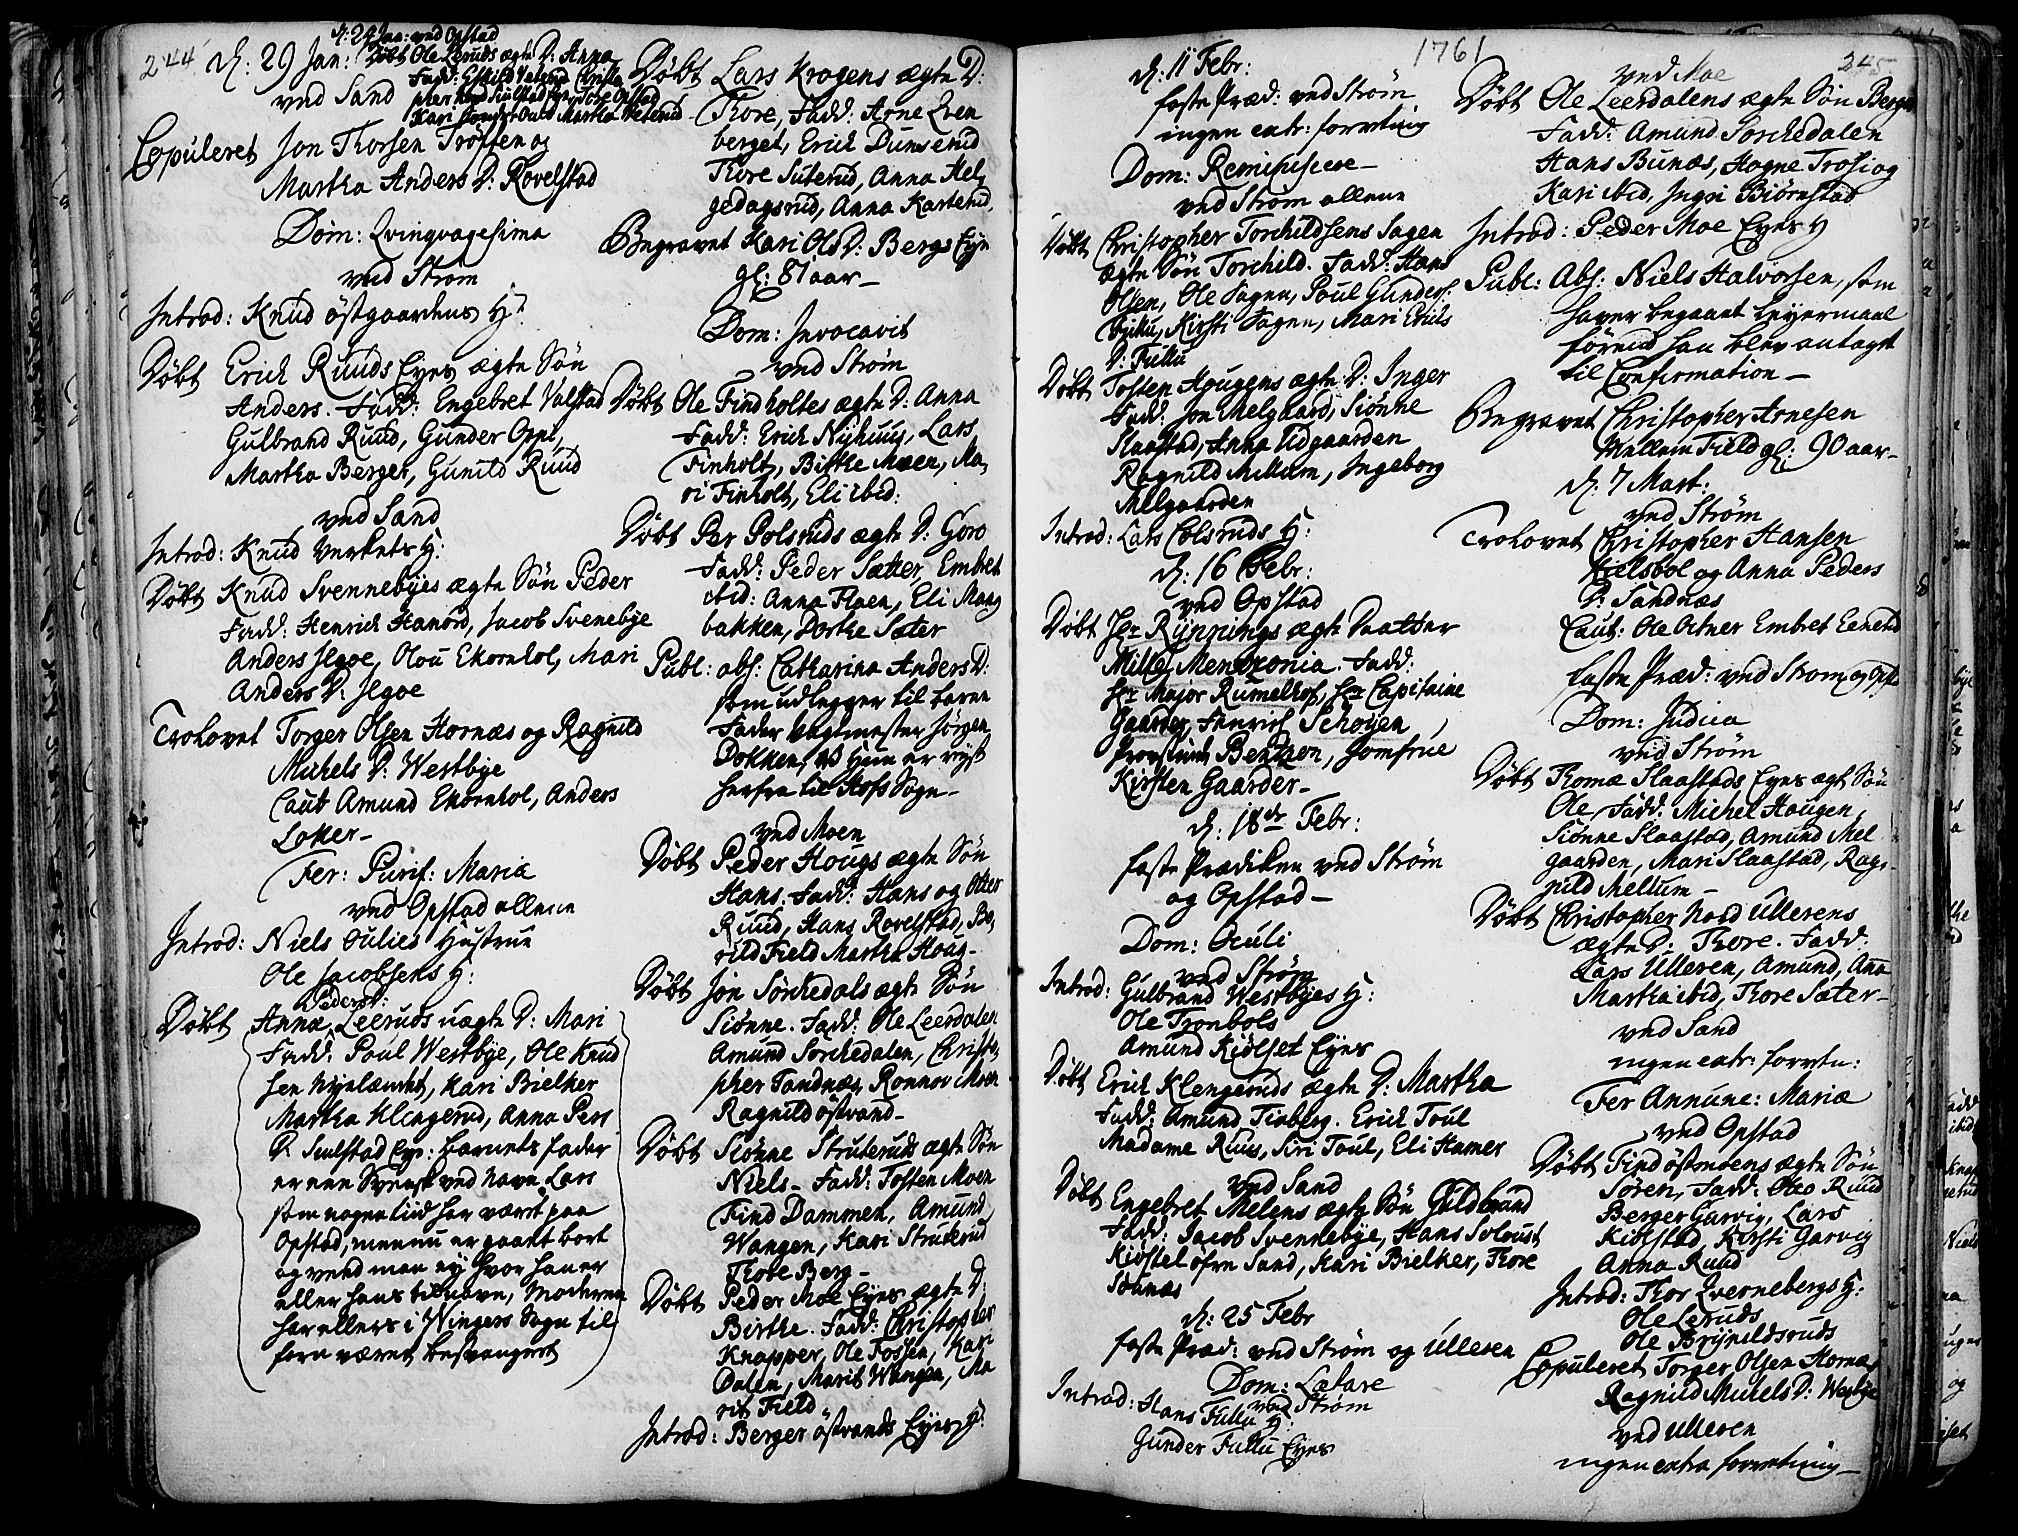 244
d: 29 Jan:
d: 29 Jan: ved Opstad
Døbt Ole Leeruds ægte D: Anna
Fadd: Eskild Veterud Christo
pher
Kari Martha Veterud
ved Sand
Copuleret Jon Thorsen Trøften og
Martha Anders D: Rovelstad
Dom: Qvinqvagesima
ved Strøm
Introd: Knud Østgaardens H:
Døbt Erich Ruuds Eyes ægte Søn
Anders. Fadd: Engebret Valstad
Gulbrand Ruud, Gunder Oppi,
Martha Berger, Gunild Ruud
ved Sand
Introd: Knud Verkets H:
Døbt Knud Svennebyes ægte Søn Peder
Fadd: Henrich Hanord, Jacob Svenebye
Anders Jlgoe, Olou Ekornhol, Mari
Anders D: Jlgoe
Trolovet Torger Olsen Hornæs og Ragnild
Michels D: Westbye
Caut Amund Ekornhol, Anders
Loker-
Fer: Purif: Maria
ved Opstad allene
Introd: Niels Oulies Hustrue
Ole Jacobsens H:
Peders D:
Døbt Annæ Leeruds uægte D: Mari
Fadd: Poul Westbye, Ole Knud
sen Myelændet, Kari Bielker
Martha Klengerud, Anna Pers
D: Sculstad Eye: barnets fader
er een Svensk ved navn Lars
som nogen tiid har været paa
Opstad, men nu er gaaet bort
og veed man ey hvor han er
eller hans tilnavn, Moderen
har ellers i Wingers Sogn til
forn været besvangert
Døbt Lars Krogens ægte D:
Thore, Fadd: Arne Qven
berget, Erich Dunserud
Thore Suterud, Anna Hel
gedagsrud, Anna Karterud,
Begravet Kari Ols D: Bergs Eye
gl: 87 aar-
Dom: Invocavit
ved Strøm
Døbt Ole Findholtes ægte D: Anna
Fadd: Erich Nyhuus, Lars
Finholt, Birthe Moen, Ma,
ri Finholt, Eli ibid:
Døbt Per Polsruds ægte D: Goro
Fadd: Peder Sætter, Embret
ibid: Anna Floen, Eli Mang
bakken, Dorthe Sæter
Publ: abs: Catharina Anders D:
som udlegger til barne
Fader Vagtmester Jørgen
Dokken, NB Hun er reyst
herfra til Hofs Sogn-
ved Moen
Døbt Peder Hougs ægte Søn
Hans. Fadd: Hans og Otter
Ruud, Hans Rovelstad, Bo,
rild Field Martha Houg-
Døbt Jon Sørchedals ægte Søn
Siønne. Fadd: Ole Leerdalen
Amund Sørchedalen, Christo,
pher Tandnæs, Ronnov Moen
Ragnild Østvand-
Døbt Siønne Struteruds ægte Søn
Niels- Fadd: Tosten Moen
Find Dammen, Amund
Wangen, Kari Struterud
Thore Berg-
Døbt Peder Moe Eyes ægte D:
Birthe. Fadd: Christopher
Knapper, Ole Fossen, Kari
Dalen, Marit Wangen, Ma
rit Field
Introd: Berger Østvands Eyes H:
1761
245
d: 11 Febr:
faste Præd: ved Strøm
ingen extr: forretning
Dom: Reminiscere-
ved Strøm allene
Døbt Christopher Torchildsens Sagen
ægte Søn Torchild. Fadd: Hans
Olsen, Ole Sagen, Poul Gunders:
Fulu, Kirsti Sagen, Mari Erichs
D: Fullu
Døbt Tosten Hougens ægte D: Inger
Fadd: Jon Melgaard, Siønne
Slaastad, Anna Udgaarden
Ragnild Mellum, Ingeborg
Melgaarden
Introd: Lars Colsruds H:
d: 16 Febr:
ved Opstad
Døbt Hr Rynnings ægte Daatter
Mille Mentzonia. Fadd:
Hr Major Rumelhof, Hr Capitaine
Gaarder, Henrich Schøyen
Benthon, Jomfrue
Kirsten Gaarder-
d: 18de Febr:
faste Prædiken ved Strøm
og Opstad-
Dom: Oculi
ved Strøm
Introd: Gulbrand Westbyes H:
Ole Tronbols
Amund Kiølset Eyes
Døbt Erich Klengeruds ægte D: Martha
Fadd: Amund Finberg. Erich Toul
Madame Ruus, Siri Toul, Eli Hamer
ved Sand
Døbt Engebret Melens ægte Søn Guldbrand
Fadd: Jacob Svennebye, Hans Soloust
Kiøstel øfre Sand, Kari Bielker, Thore
Sønnæs
d: 25 Febr
faste Præd: ved Strøm og Ulleren
Dom: Lætare
ved Strøm
Introd: Hans Fullu H:
Gunder Fullu Eyes
ved Moe
Døbt Ole Leerdalens ægte Søn Berger
Fadd: Amund Sorchedalen
Hans Bunæs, Hogne Trosi og
Kari ibid, Ingri Biørnstad
Introd: Peder Moe Eyes H
Publ: Abs: Niels Halvorsen, som
haver begaaet leyermaal
førend han blev antaget
til Confirmation-
Begravet Christopher Arnesen
Mellem Field gl: 90 aar-
d: 7 Mart:
ved Strøm
Trolovet Christopher Hansen
Kielsbol og Anna Peders
D: Sandnæs
Caut: Ole Oitner Embret Eensrud
faste Præd: ved Strøm og Opst
Dom: Judica
ved Strøm
Døbt Thomæ Slaastads Eyes ægt Søn
Ole Fadd: Michel Hougen,
Siønne Slaastad, Amund Mel
gaarden, Mari Slaastad, Rag,
nild Mellum-
Døbt Christopher Nord Ullerens
ægte D: Thore. Fadd:
Lars Ulleren, Amund, Anna
Martha ibid, Thore Sæter-
ved Sand
ingen extr: forretn:
Fer Annunc: Mariæ
ved Opstad
Døbt Find Østmoens ægte Søn
Søren, Fadd: Otto Ruud
Berger Garvig, Lars
Kiølstad, Kirsti Garvig
Anna Ruud
Introd: Thor Qvernebergs H:
Ole Leruds
Ole Brynildsruds
Copuleret Torger Olsen Hornæs
Ragnild Michels D: Westbye
ved Ulleren
ingen extra forretning-